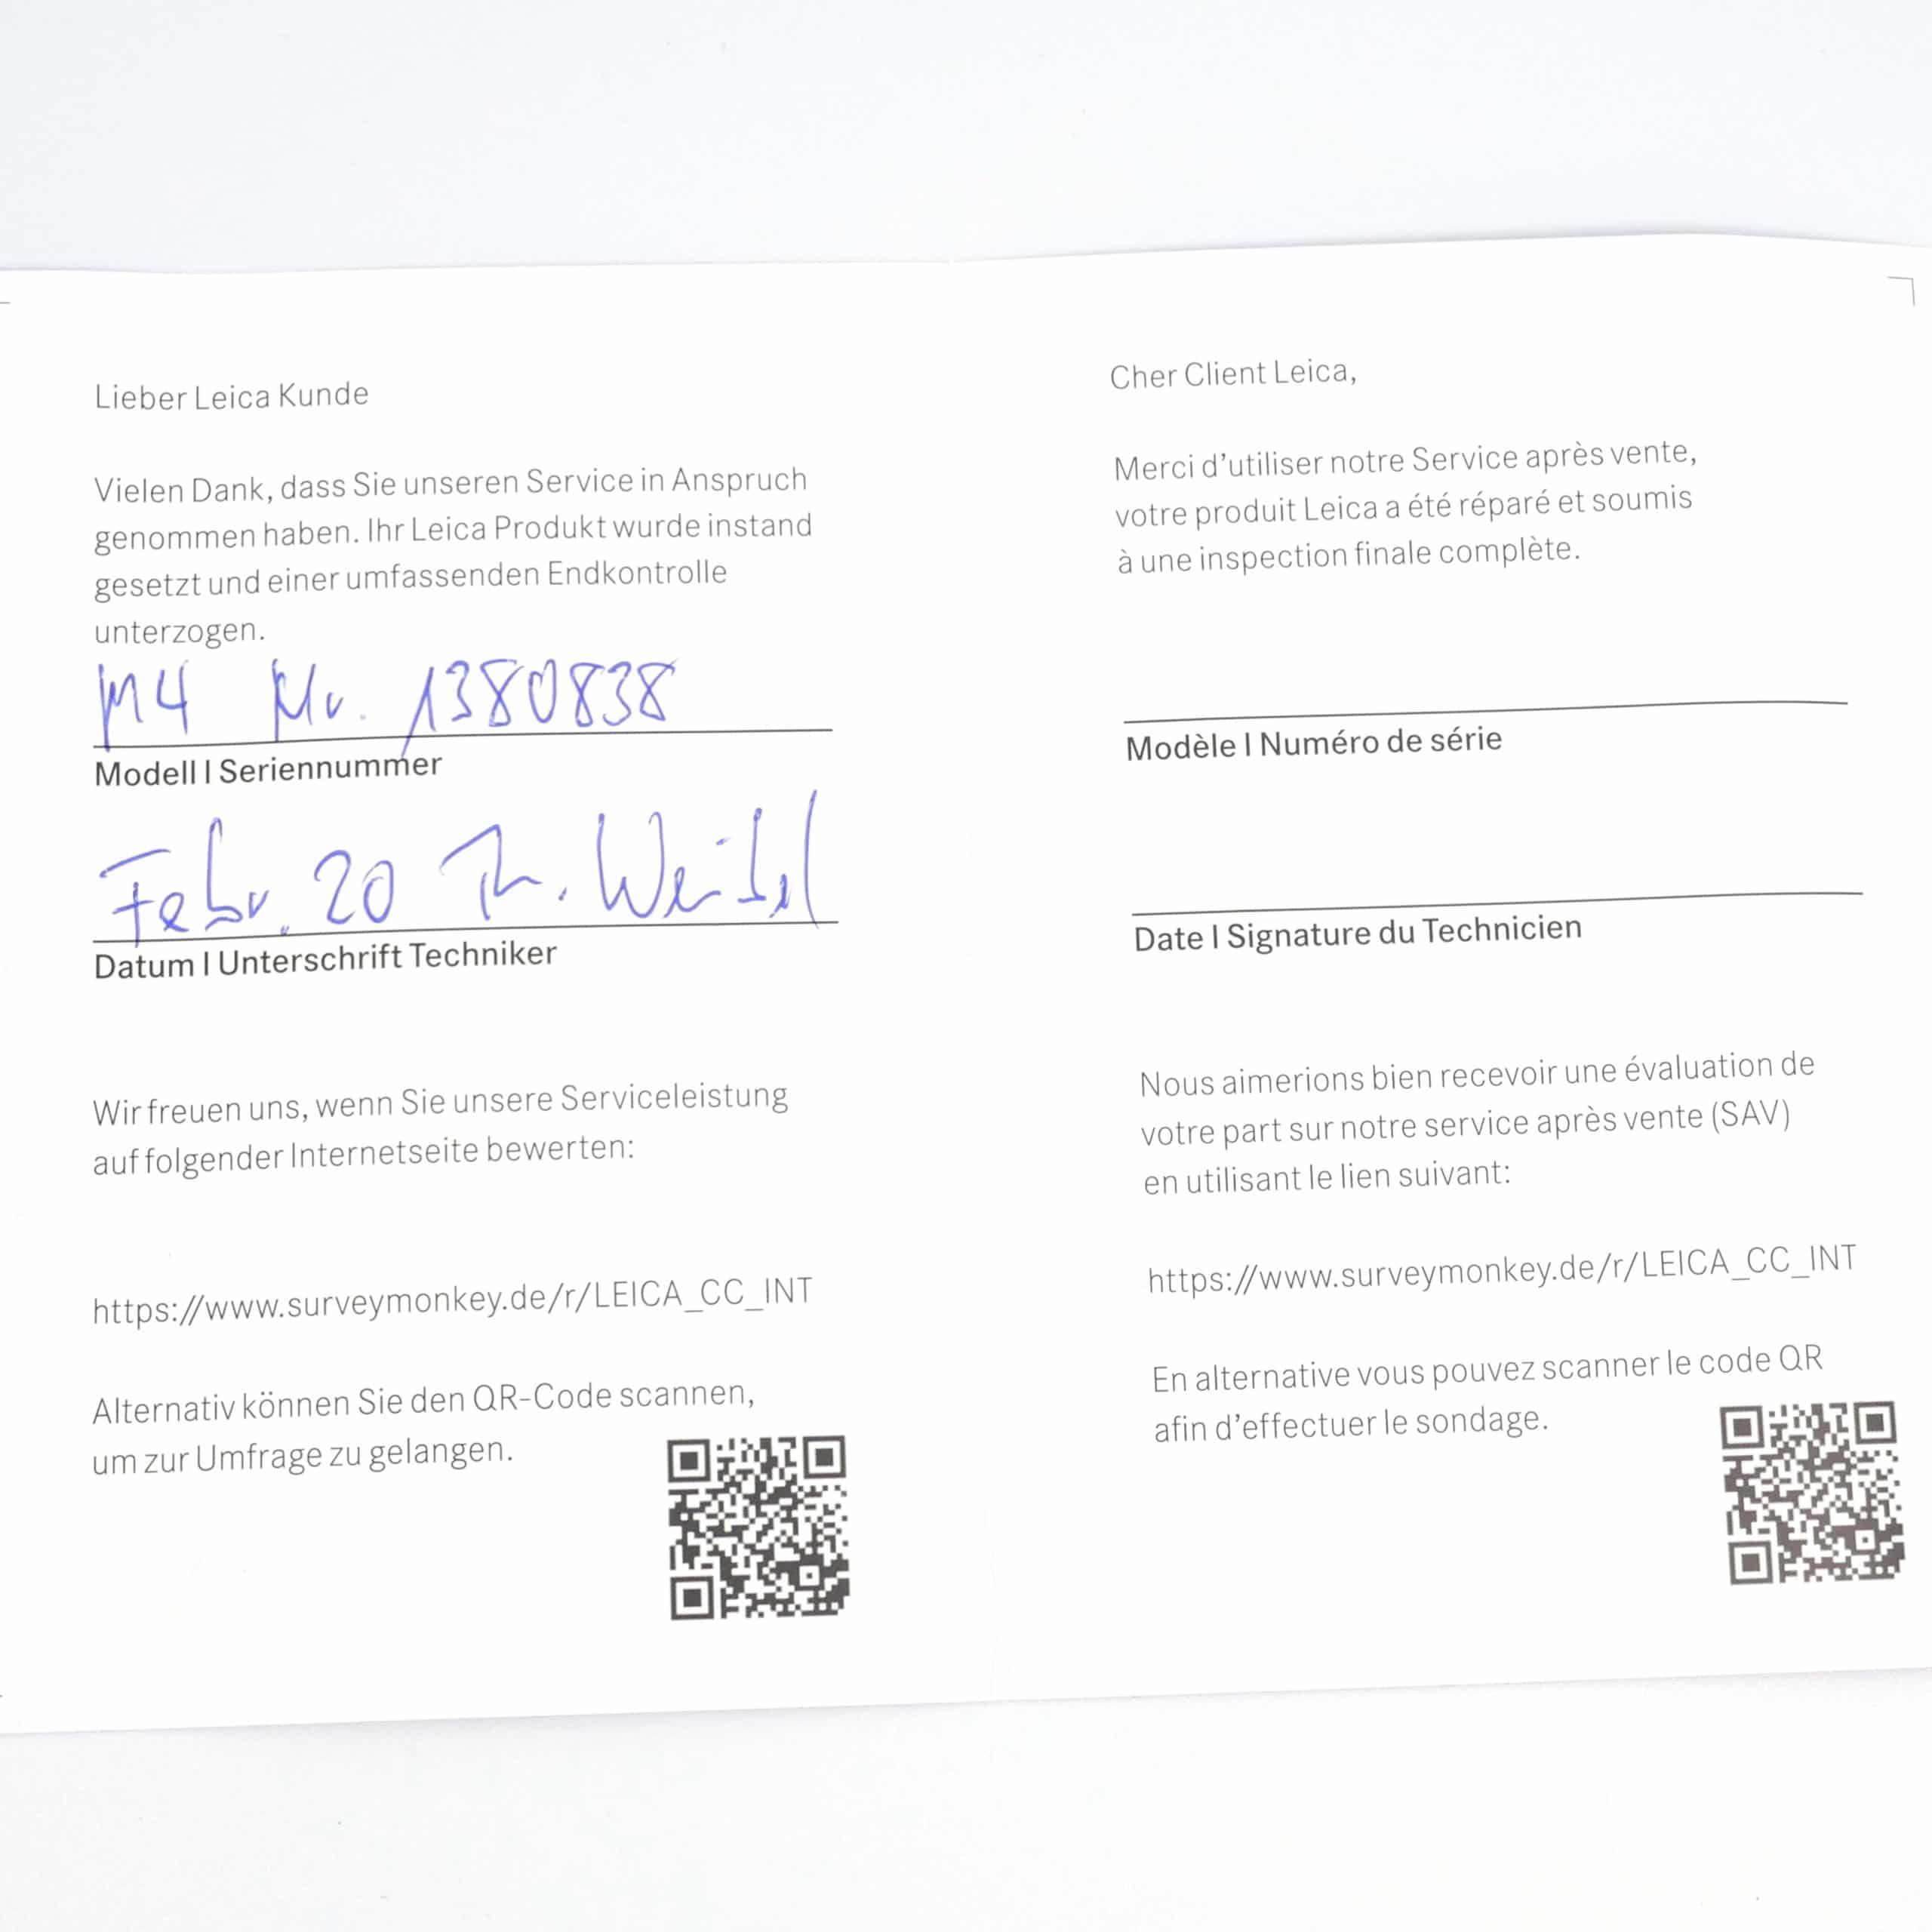 Lieber Leica Kunde
Vielen Dank, dass Sie unseren Service in Anspruch
genommen haben. Ihr Leica Produkt wurde instand
gesetzt und einer umfassenden Endkontrolle
unterzogen.
M4 Nr. 1380838
Modell | Seriennummer
Febr. 20 Th.
Datum | Unterschrift Techniker
Wir freuen uns, wenn Sie unsere Serviceleistung
auf folgender Internetseite bewerten:
https://www.surveymonkey.de/r/LEICA_CC_INT
Alternativ können Sie den QR-Code scannen,
um zur Umfrage zu gelangen.
Cher Client Leica,
Merci d'utiliser notre Service après vente,
votre produit Leica a été réparé et soumis
à une inspection finale complète.
Modèle | Numéro de série
Date | Signature du Technicien
Nous aimerions bien recevoir une évaluation de
votre part sur notre service après vente (SAV)
en utilisant le lien suivant:
https://www.surveymonkey.de/r/LEICA_CC_INT
En alternative vous pouvez scanner le code QR
afin d'effectuer le sondage.